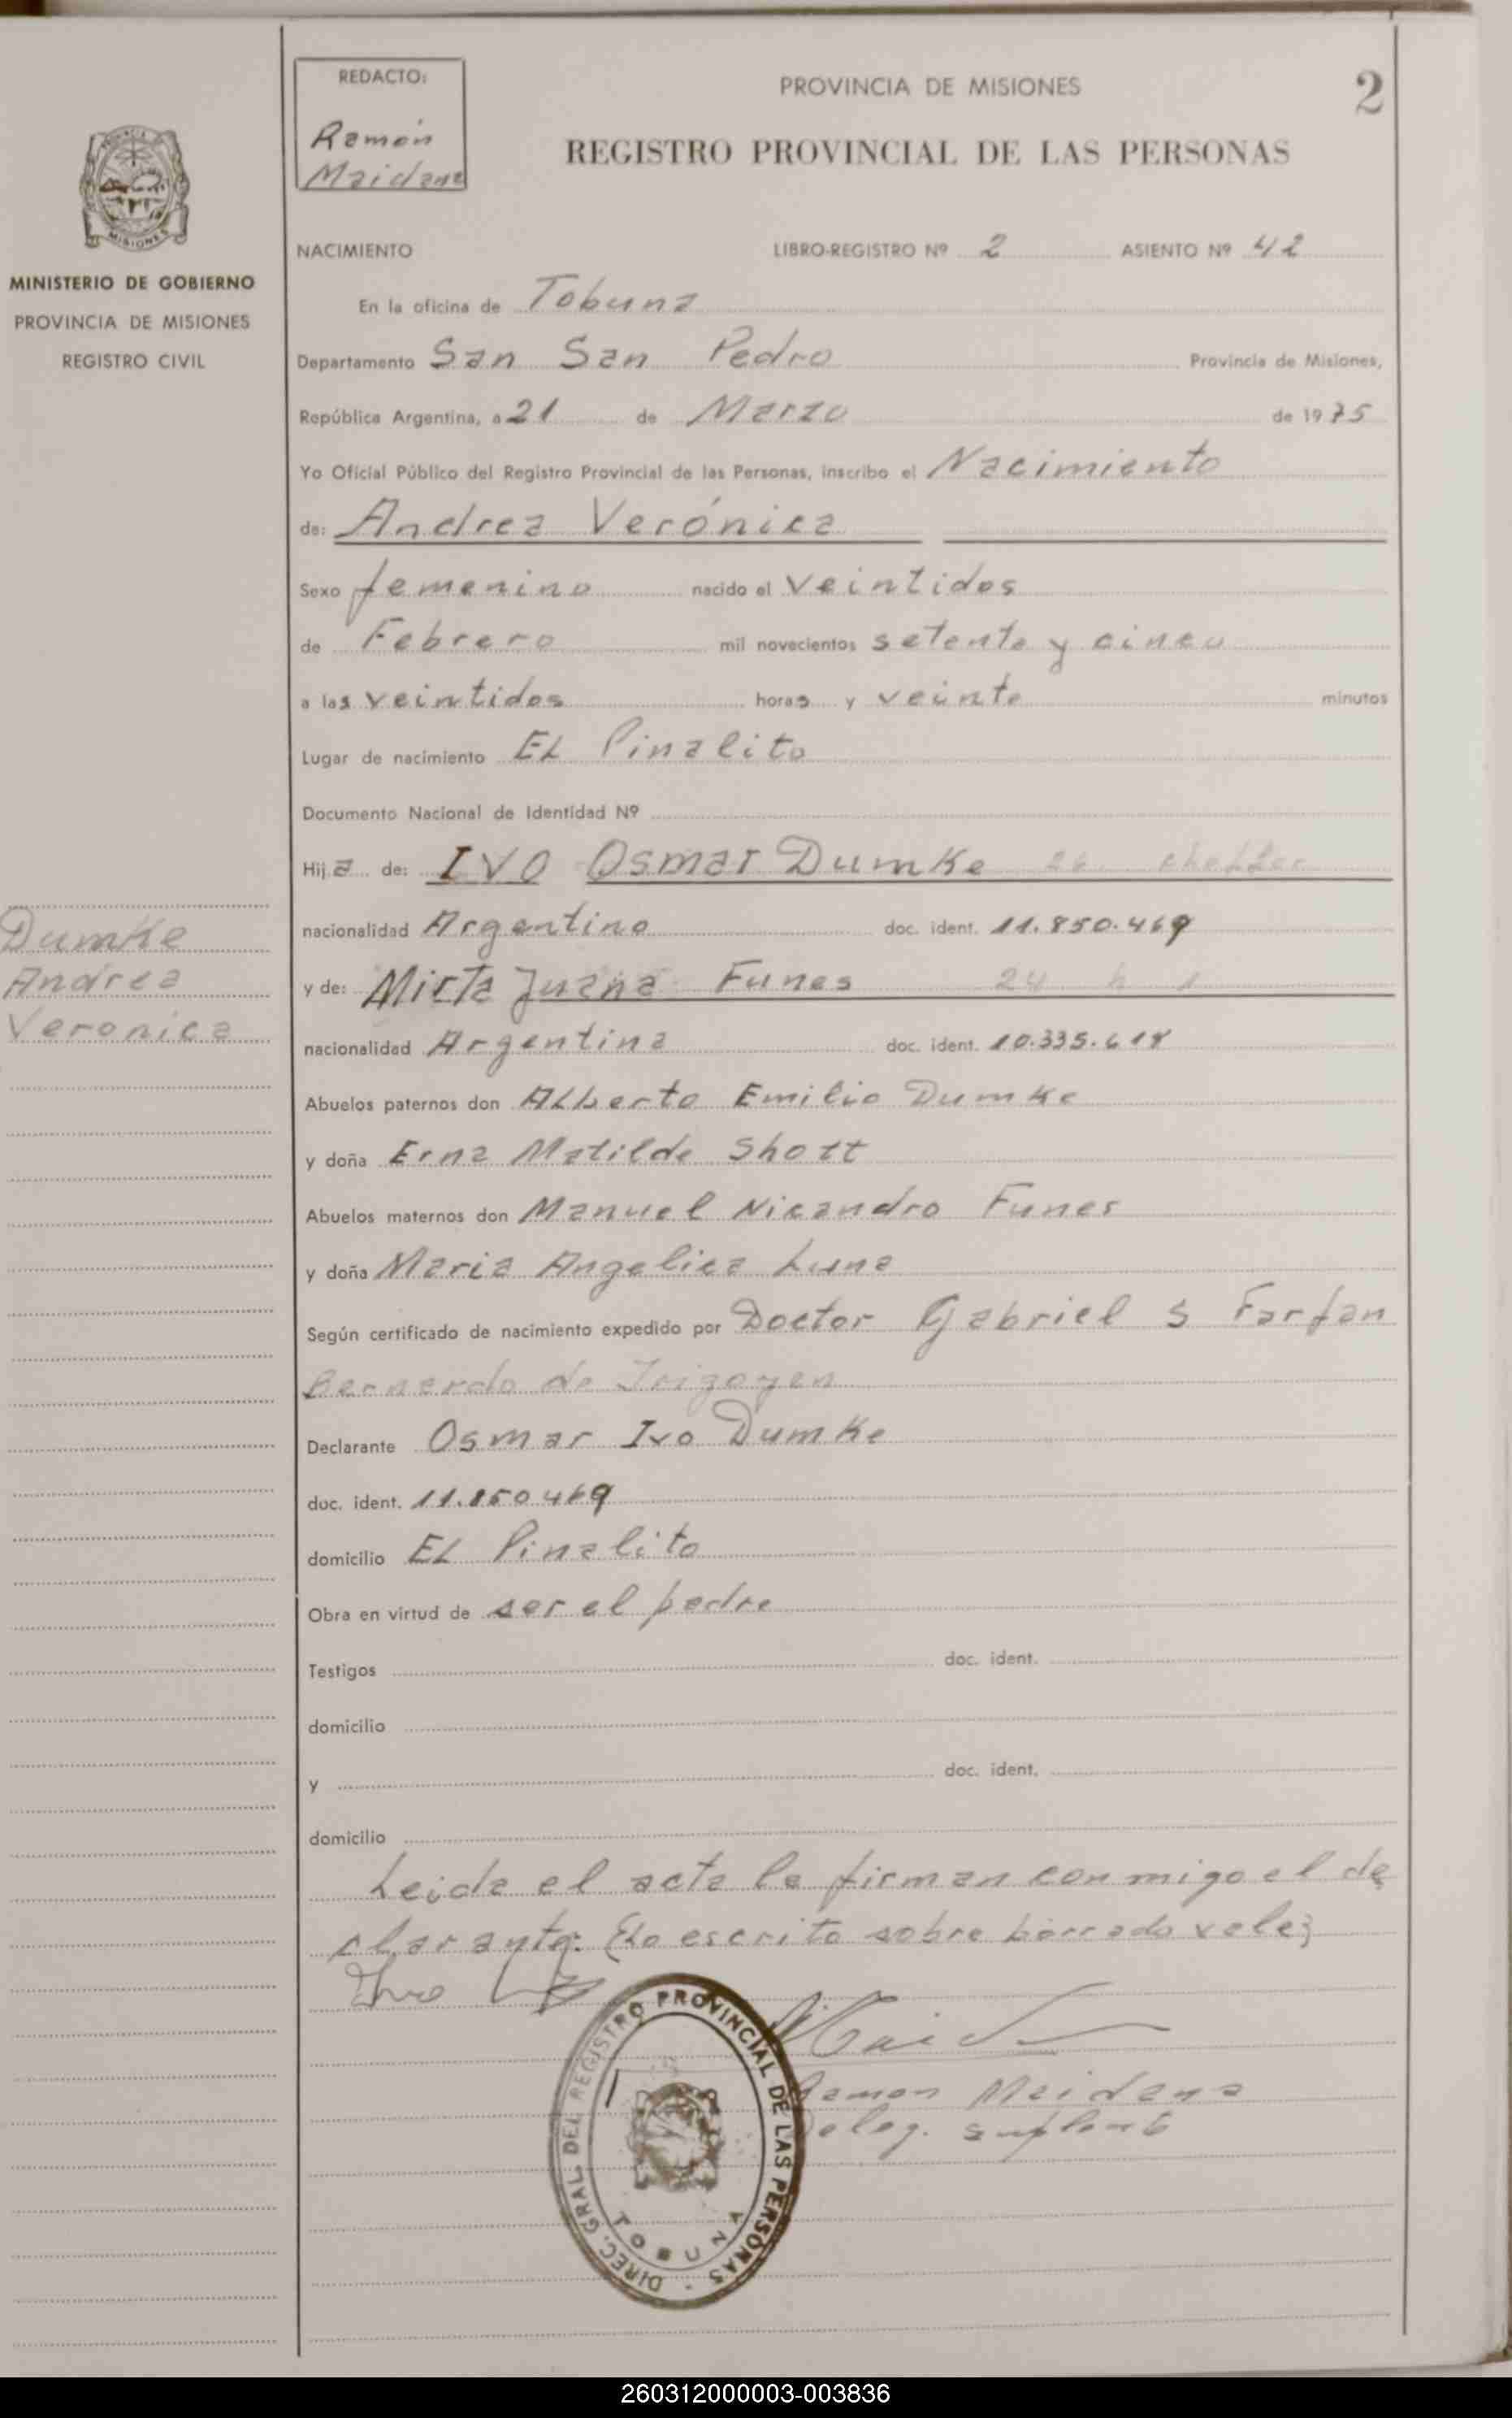 REDACTO:
Ramón
Maidana
PROVINCIA DE MISIONES
2
REGISTRO PROVINCIAL DE LAS PERSONAS
MISIONES
MINISTERIO DE GOBIERNO
PROVINCIA DE MISIONES
REGISTRO CIVIL
NACIMIENTO LIBRO-REGISTRO Nº 2 ASIENTO Nº 42
En la oficina de Tobuna
Departamento San San Pedro Provincia de Misiones,
República Argentina, a 21 de Marzo de 1975
Yo Oficial Público del Registro Provincial de las Personas, inscribo el Nacimiento
de: Andrea Verónica
Sexo femenino nacido el veintidos
de Febrero mil novecientos setenta y cinco
a las veintidos horas y veinte minutos
Lugar de nacimiento EL Pinalito
Documento Nacional de Identidad Nº
Hija de: IVO Osmar Dumke 26
nacionalidad Argentino doc. ident. 11.850.469
y de: Mirta Juana Funes 24
nacionalidad Argentina doc. ident. 10.335.618
Abuelos paternos don Alberto Emilio Dumke
y doña Erna Matilde Shott
Abuelos maternos don Manuel Nicandro Funes
y doña Maria Angelica Luna
Según certificado de nacimiento expedido por Doctor Gabriel S Farfan
Bernardo de Irigoyen
Declarante Osmar Ivo Dumke
doc. ident. 11.850.469
domicilio EL Pinalito
Obra en virtud de ser el padre
Testigos doc. ident.
domicilio
y doc. ident.
domicilio
Leida el acta la firman conmigo el de
clarante: Lo escrito sobre borrado vale
Dumke
Andrea
Veronica
Ramon Maidana
Deleg. suplente
DIREC. GRAL. DEL REGISTRO PROVINCIAL DE LAS PERSONAS
TOBUNA
260312000003-003836